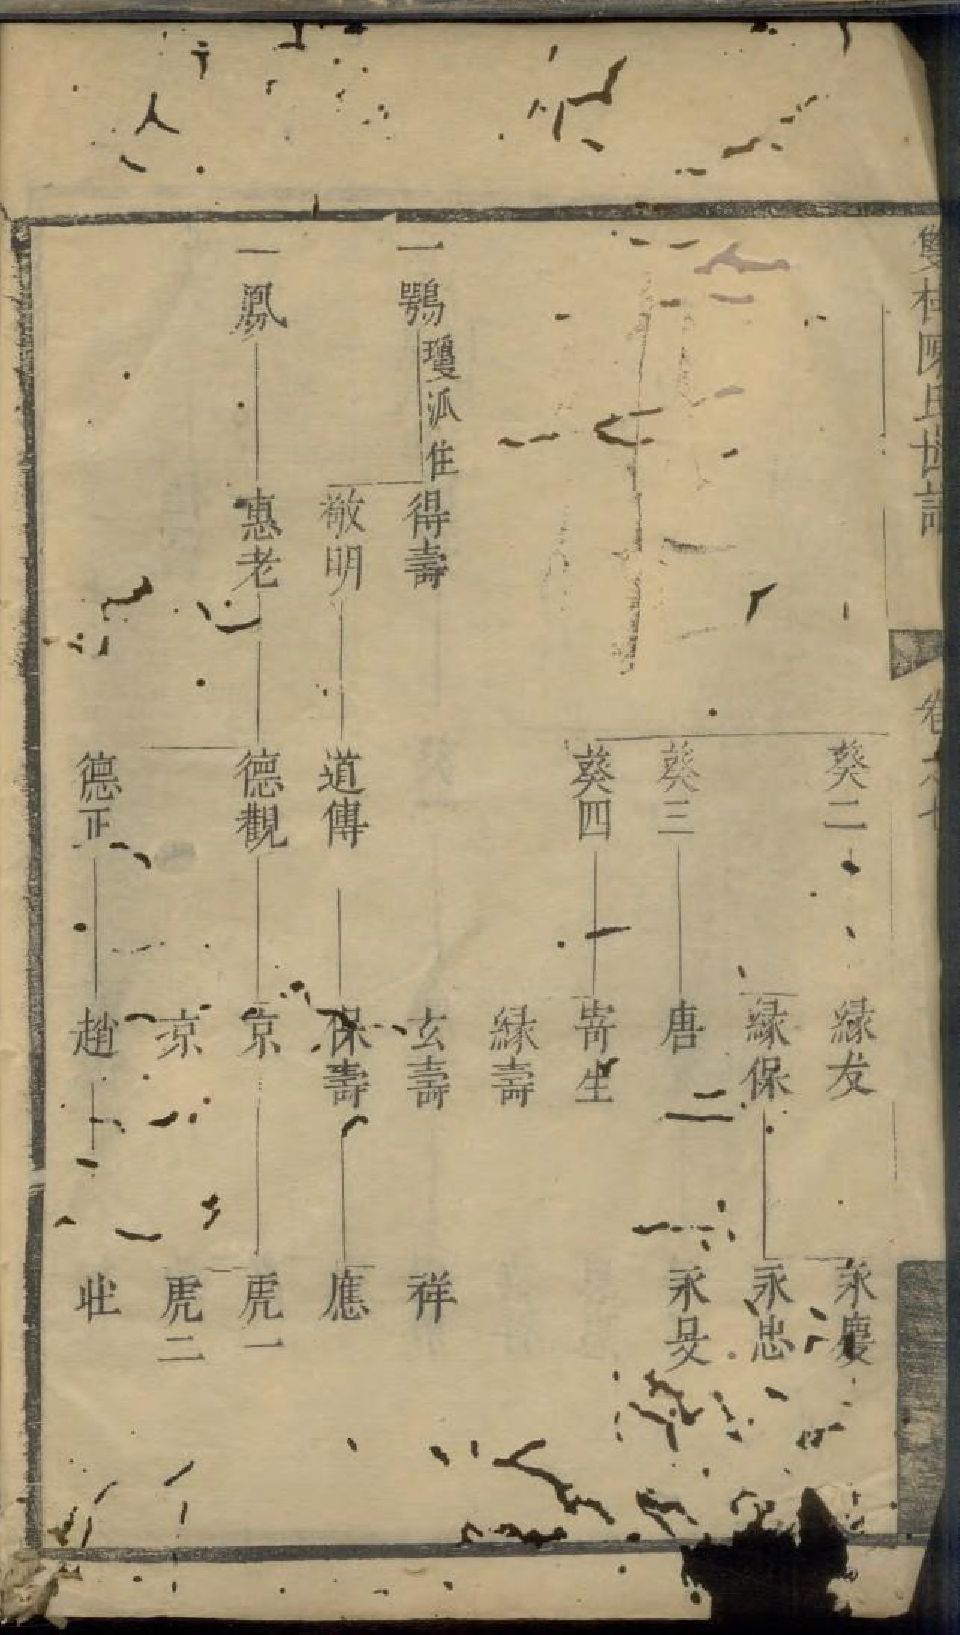 雙桂陳氏世譜
卷之七
葵二
緣友
永慶
緣保
永忠
葵三
唐
永旻
葵四
寄生
緣壽
一鶚
瓊泒住
得壽
玄壽
祥
敬明
道傳
保壽
應
一鳳
惠老
德觀
京
虎一
京
虎二
德正
趙
壯